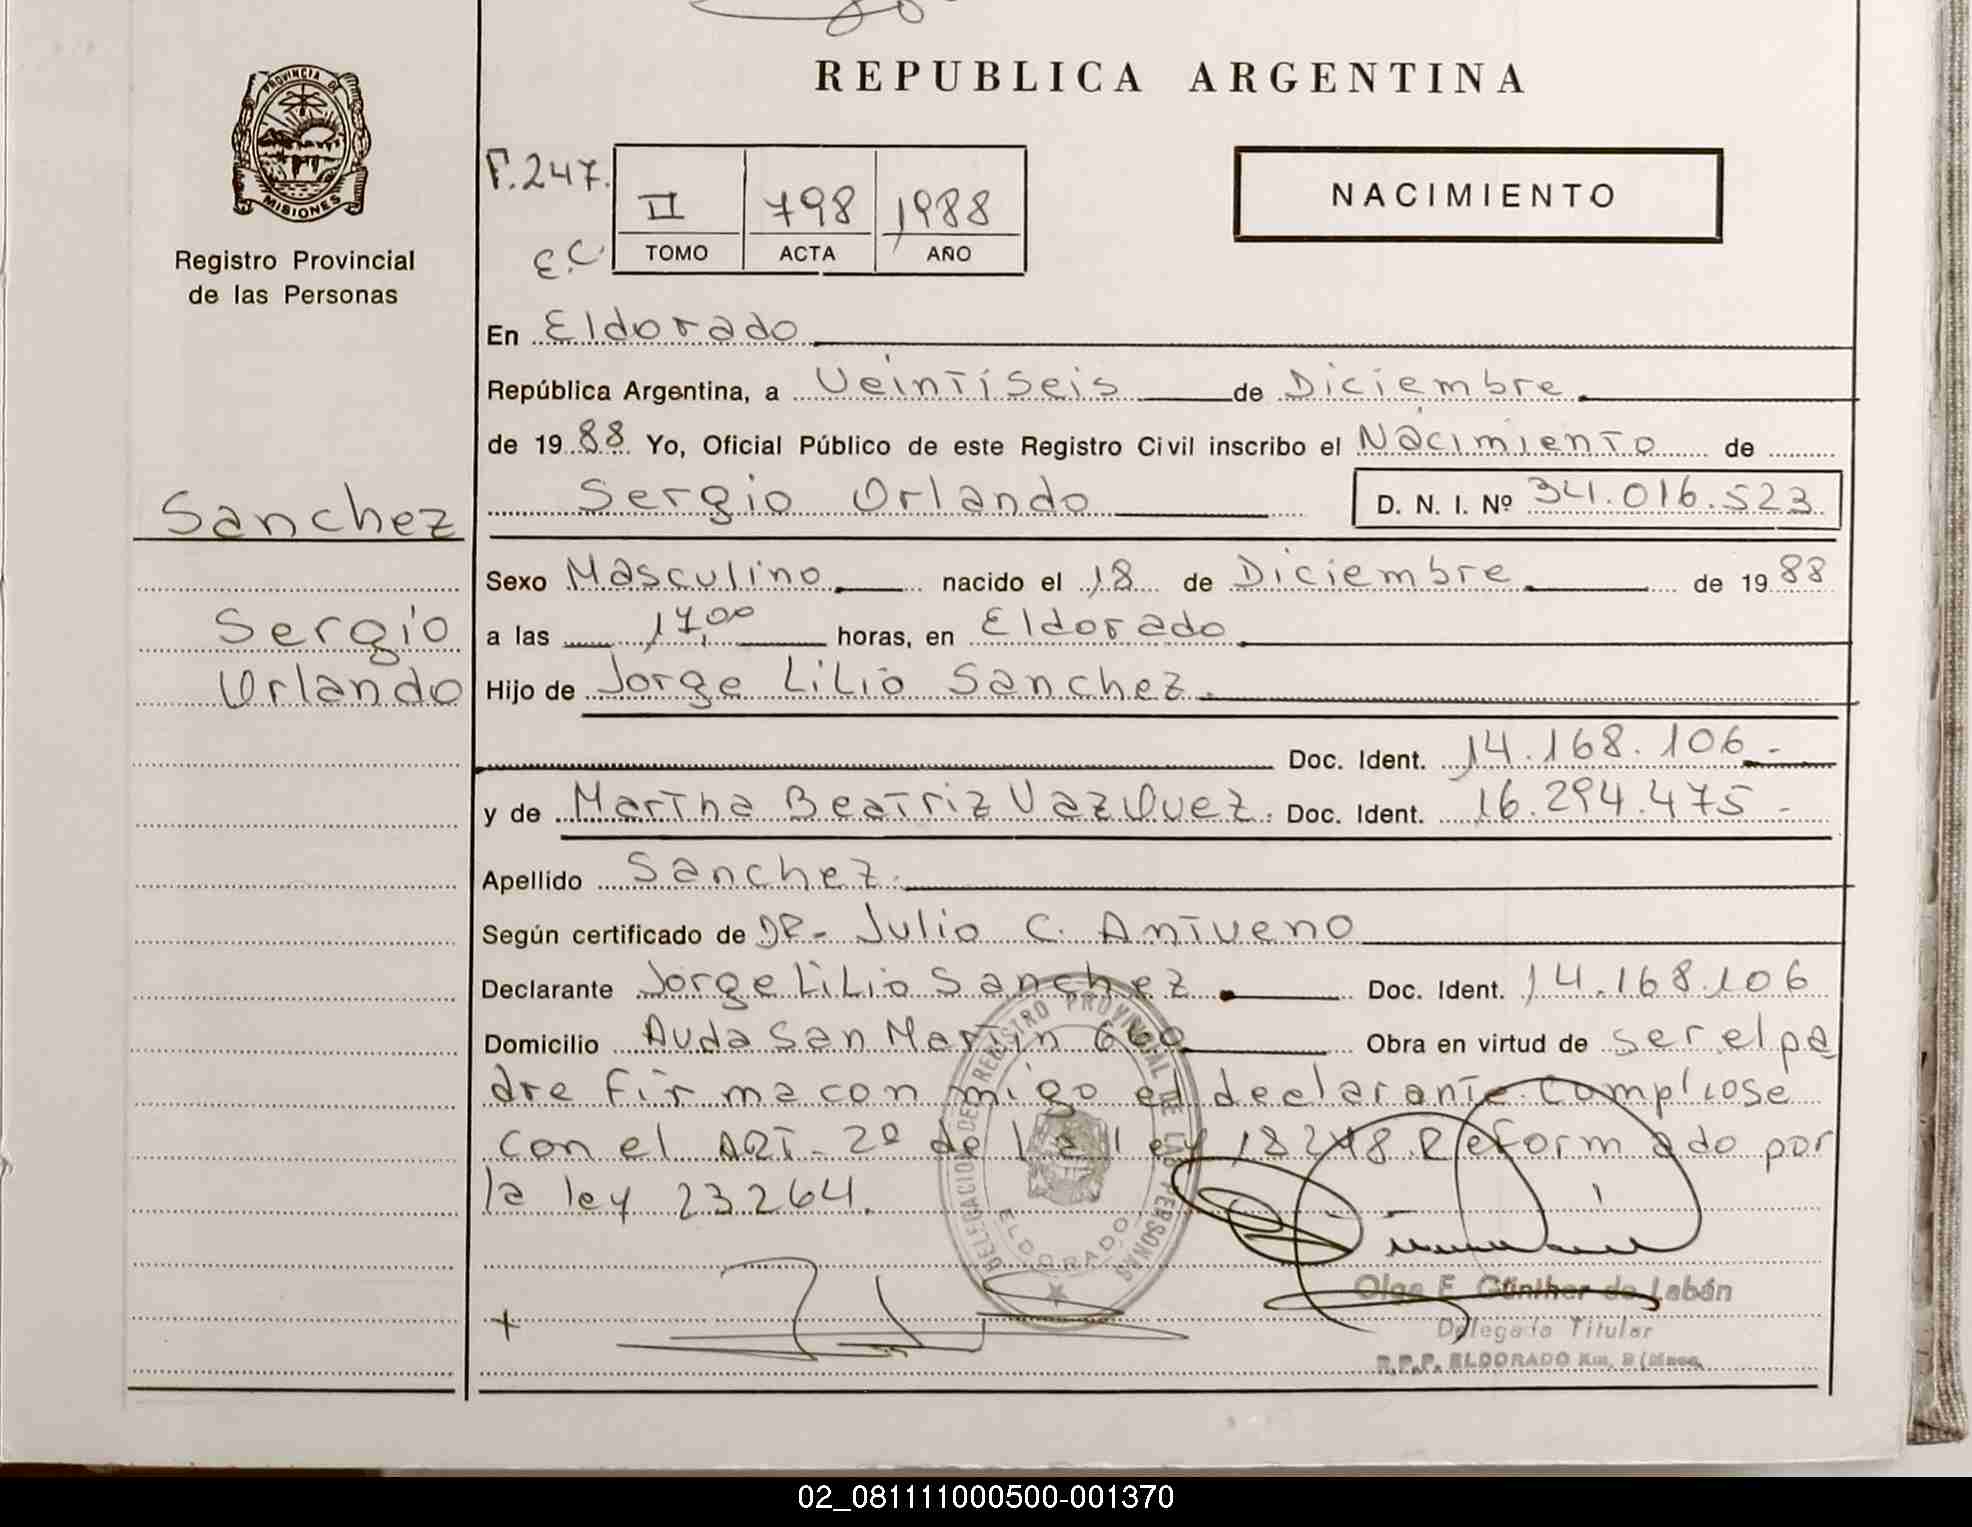 REPUBLICA ARGENTINA
PROVINCIA DE
MISIONES
Registro Provincial
de las Personas
F.247.
E.C.
II 798 1988
TOMO ACTA AÑO
NACIMIENTO
En Eldorado
República Argentina, a Veintiseis de Diciembre
de 1988 Yo, Oficial Público de este Registro Civil inscribo el Nacimiento de
Sergio Orlando D. N. I. Nº 34.016.523
Sanchez
Sergio
Orlando
Sexo Masculino nacido el 18 de Diciembre de 1988
a las 17,00 horas, en Eldorado
Hijo de Jorge Lilio Sanchez.
Doc. Ident. 14.168.106-
y de Martha Beatriz Vazquez. Doc. Ident. 16.294.475-
Apellido Sanchez.
Según certificado de DR- Julio C. Antueno
Declarante Jorge Lilio Sanchez Doc. Ident. 14.168.106
Domicilio Avda San Martin 660 Obra en virtud de ser el pa
dre firma con migo el declarante Complíose
con el ART- 2º de la ley 18248 Reformado por
la ley 23264.
DELEGACION DEL REGISTRO PROVINCIAL DE LAS PERSONAS
ELDORADO
+
Olga E. Günther de Labán
Delegada Titular
R.P.P. ELDORADO Km. 9 (Mnes.
02_081111000500-001370